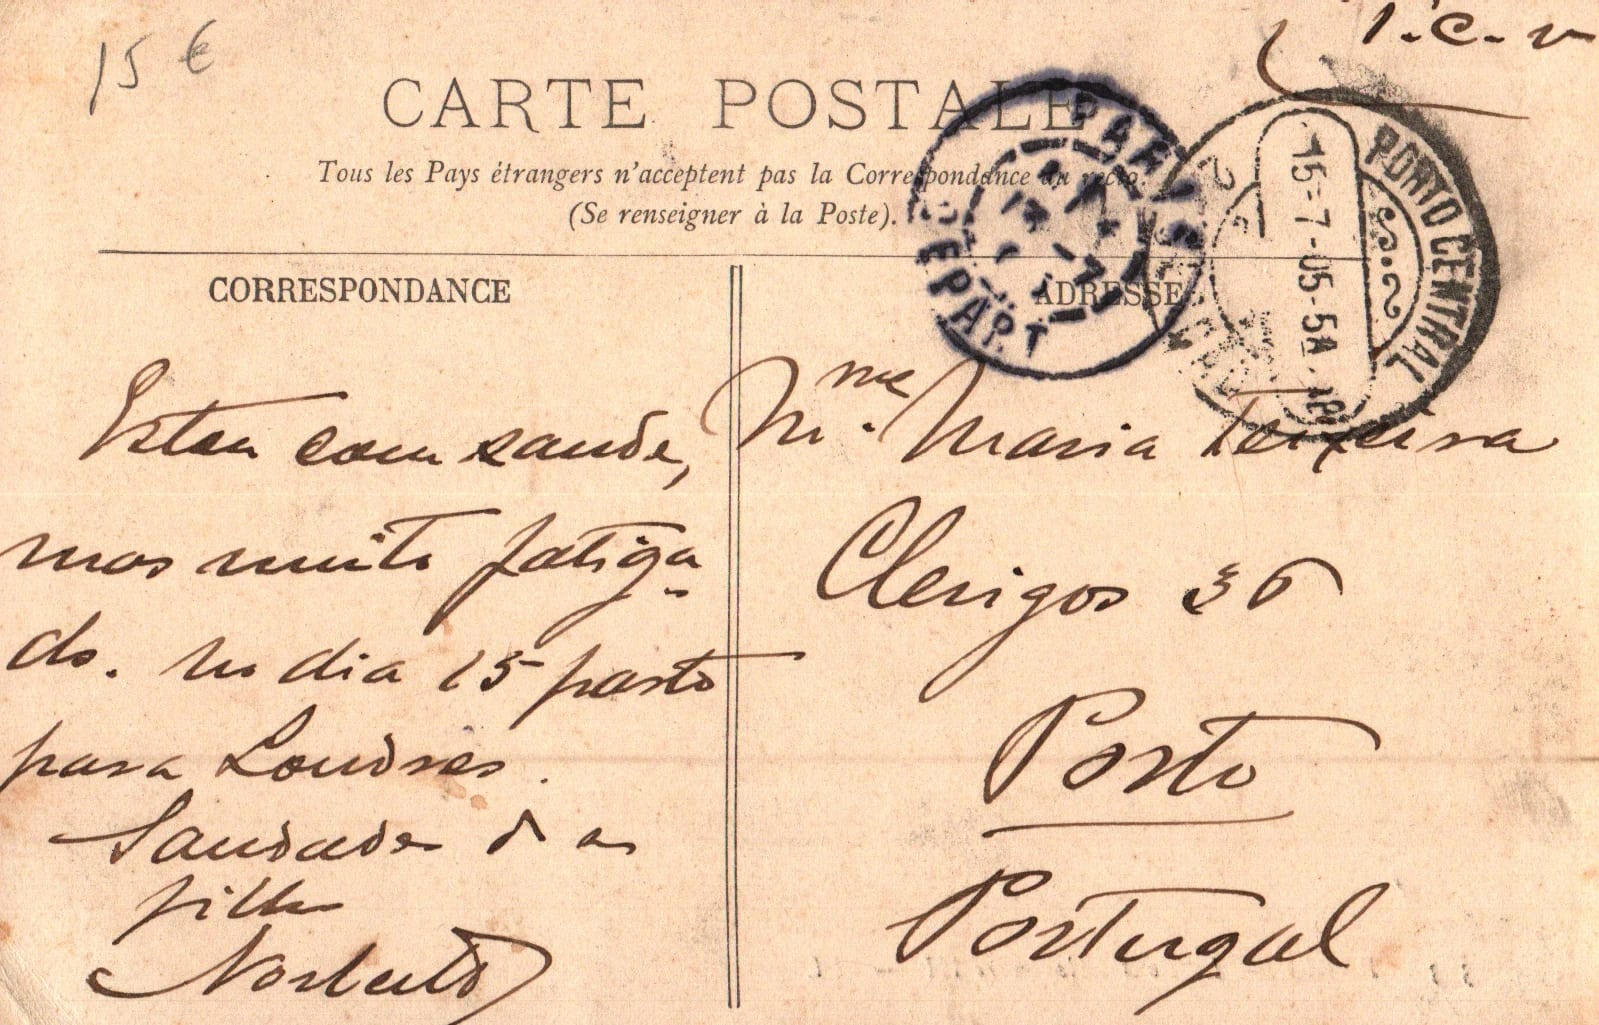 15 €
T.C.V
CARTE POSTALE
Tous les Pays étrangers n'acceptent pas la Correspondance au recto.
(Se renseigner à la Poste).
PARIS
DEPART
PORTO CENTRAL
15-7-05-5M
CORRESPONDANCE
Estou com saude,
mas muito fatiga-
do. No dia 15 parto
para Londres.
Saudades d as
filhas
Norberto
ADRESSE
Mme. Maria Teixeira
Clerigos 36
Porto
Portugal